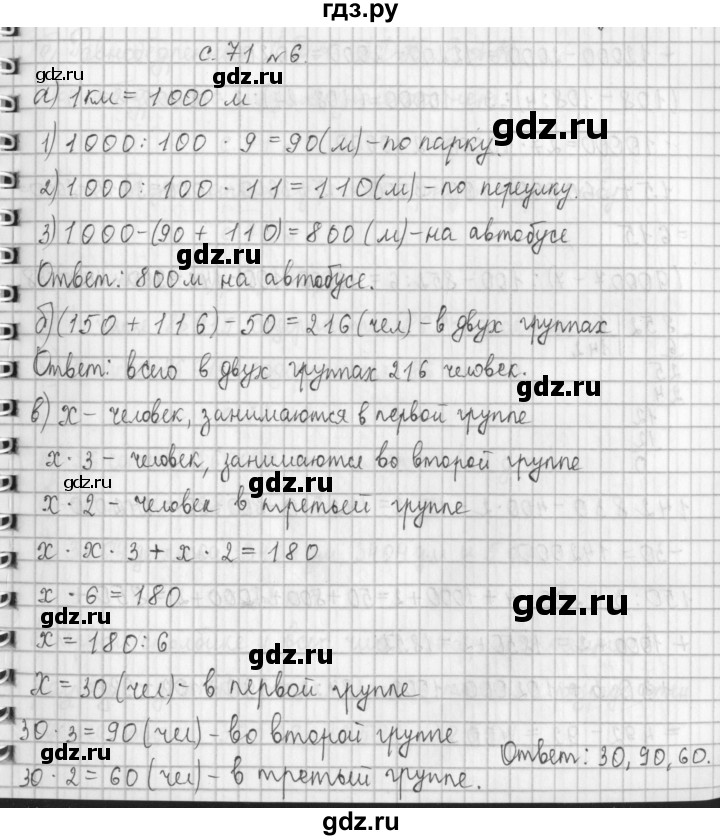 гдз.ру
с. 71 №6.
gdz.ru
а) 1км = 1000 м
gdz.ru
1) 1000 : 100 · 9 = 90(м) - по парку.
2) 1000 : 100 · 11 = 110(м) - по переулку.
3) 1000-(90 + 110) = 800 (м) - на автобусе
gdz.ru
Ответ: 800м на автобусе.
б) (150 + 116) - 50 = 216 (чел) - в двух группах
gdz.ru
Ответ: всего в двух группах 216 человек.
gdz.ru
в) х - человек, занимаются в первой группе
х · 3 - человек, занимаются во второй группе
gdz.ru
gdz.ru
х · 2 - человек в третьей группе
х · х · 3 + х · 2 = 180
х · 6 = 180
gdz.ru
gdz.ru
х = 180 : 6
gdz.ru
х = 30 (чел) - в первой группе
30 · 3 = 90 (чел) - во второй группе
gdz.ru
gdz.ru
Ответ: 30, 90, 60.
30 · 2 = 60 (чел) - в третьей группе.
gdz.ru